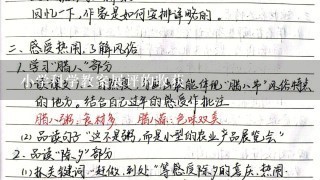 回忆一下,作家是如何安排详略的。
二、感受热闹,了解风俗
1.学习“腊八”部分
的地方。结合自己过年的感受作批注
腊八粥:食材多 腊八蒜:色味双美
(2)品读句子“这不是粥,而是小型的农业产品展览会”
2.品读“除夕”部分
(1)抓关键词“赶做、到处”等感受除夕的喜庆、热闹。